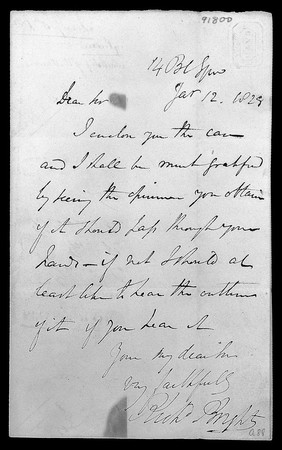 91800
14 Bl Sqre
Jany 12. 1829
Dear Sir
I enclose you the case
and I shall be most grateful
by seeing the opinion you obtain
if it should pass through your
hands – if not I should at
least like to hear the outline
of it if you hear it
Your my dear Sir
very faithfully
Richd Bright